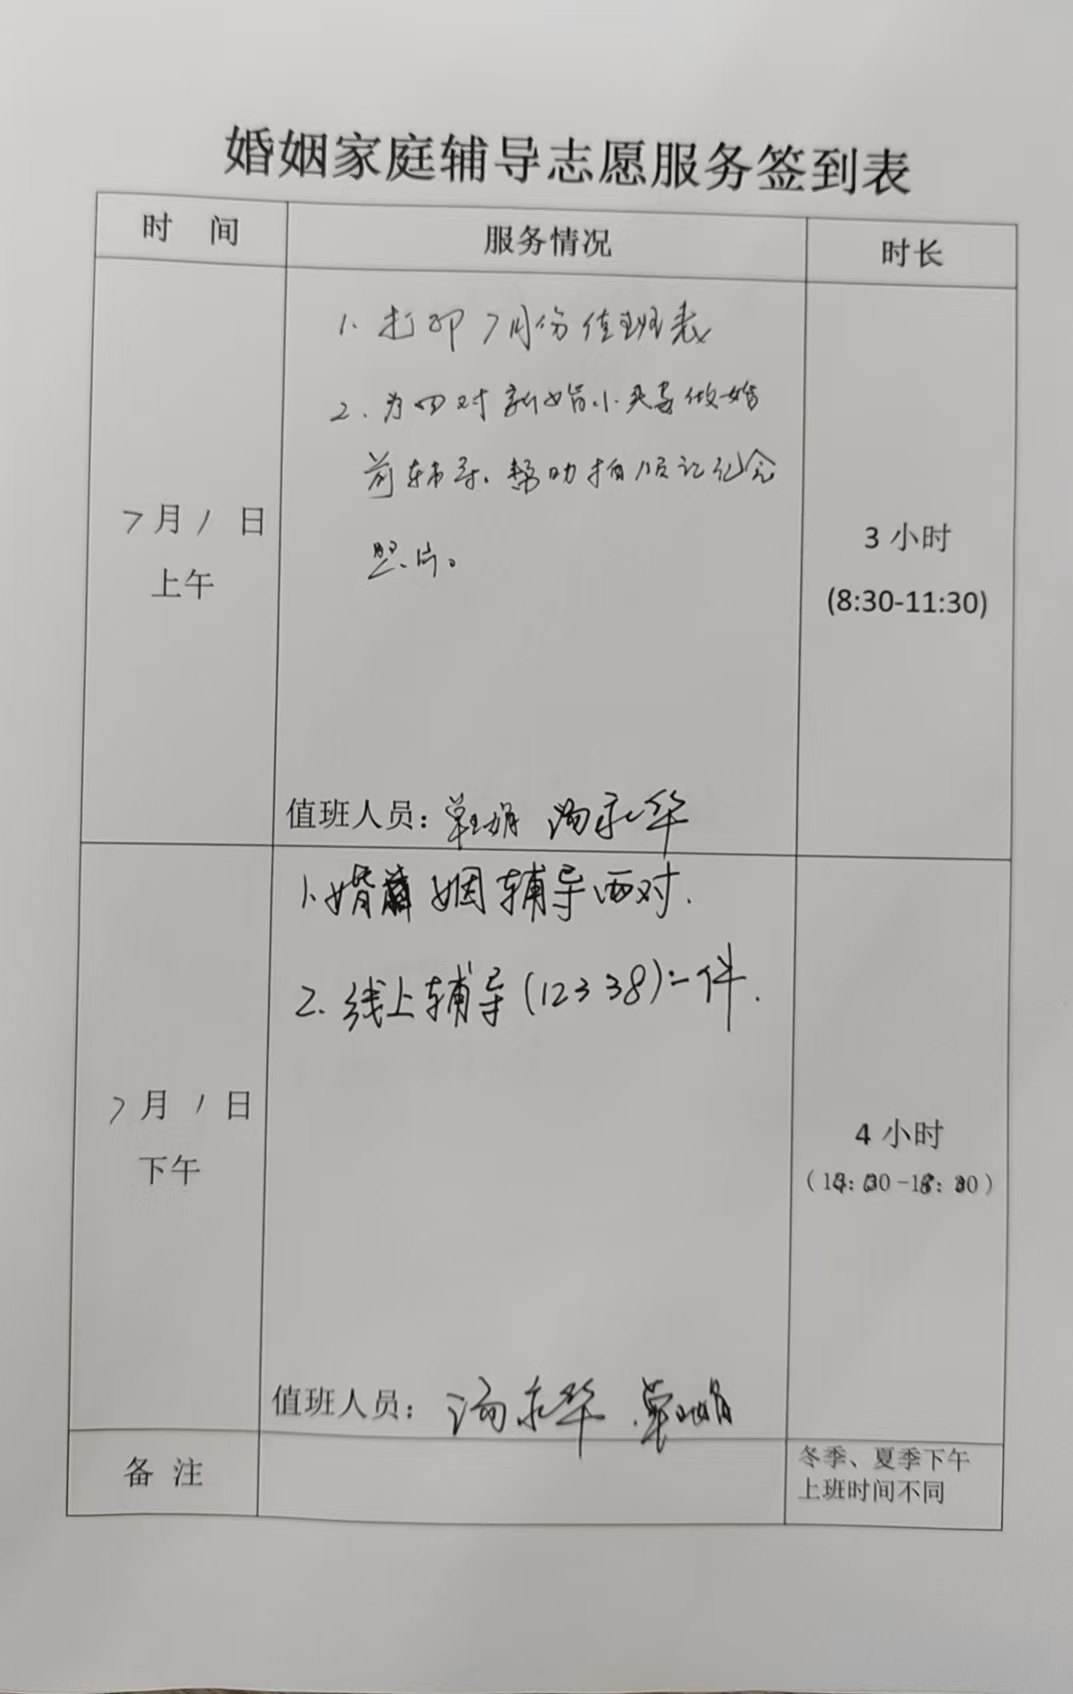 婚姻家庭辅导志愿服务签到表
时 间 服务情况 时长
1. 打印7月份值班表
2. 为四对新婚小夫妻做婚
前辅导、帮助拍照记纪念
照片。
7月1日
上午
3小时
(8:30-11:30)
值班人员：
1.婚姻辅导两对.
2.线上辅导(12338)二件.
7月1日
下午
4小时
值班人员： 汤永华
备 注
冬季、夏季下午
上班时间不同